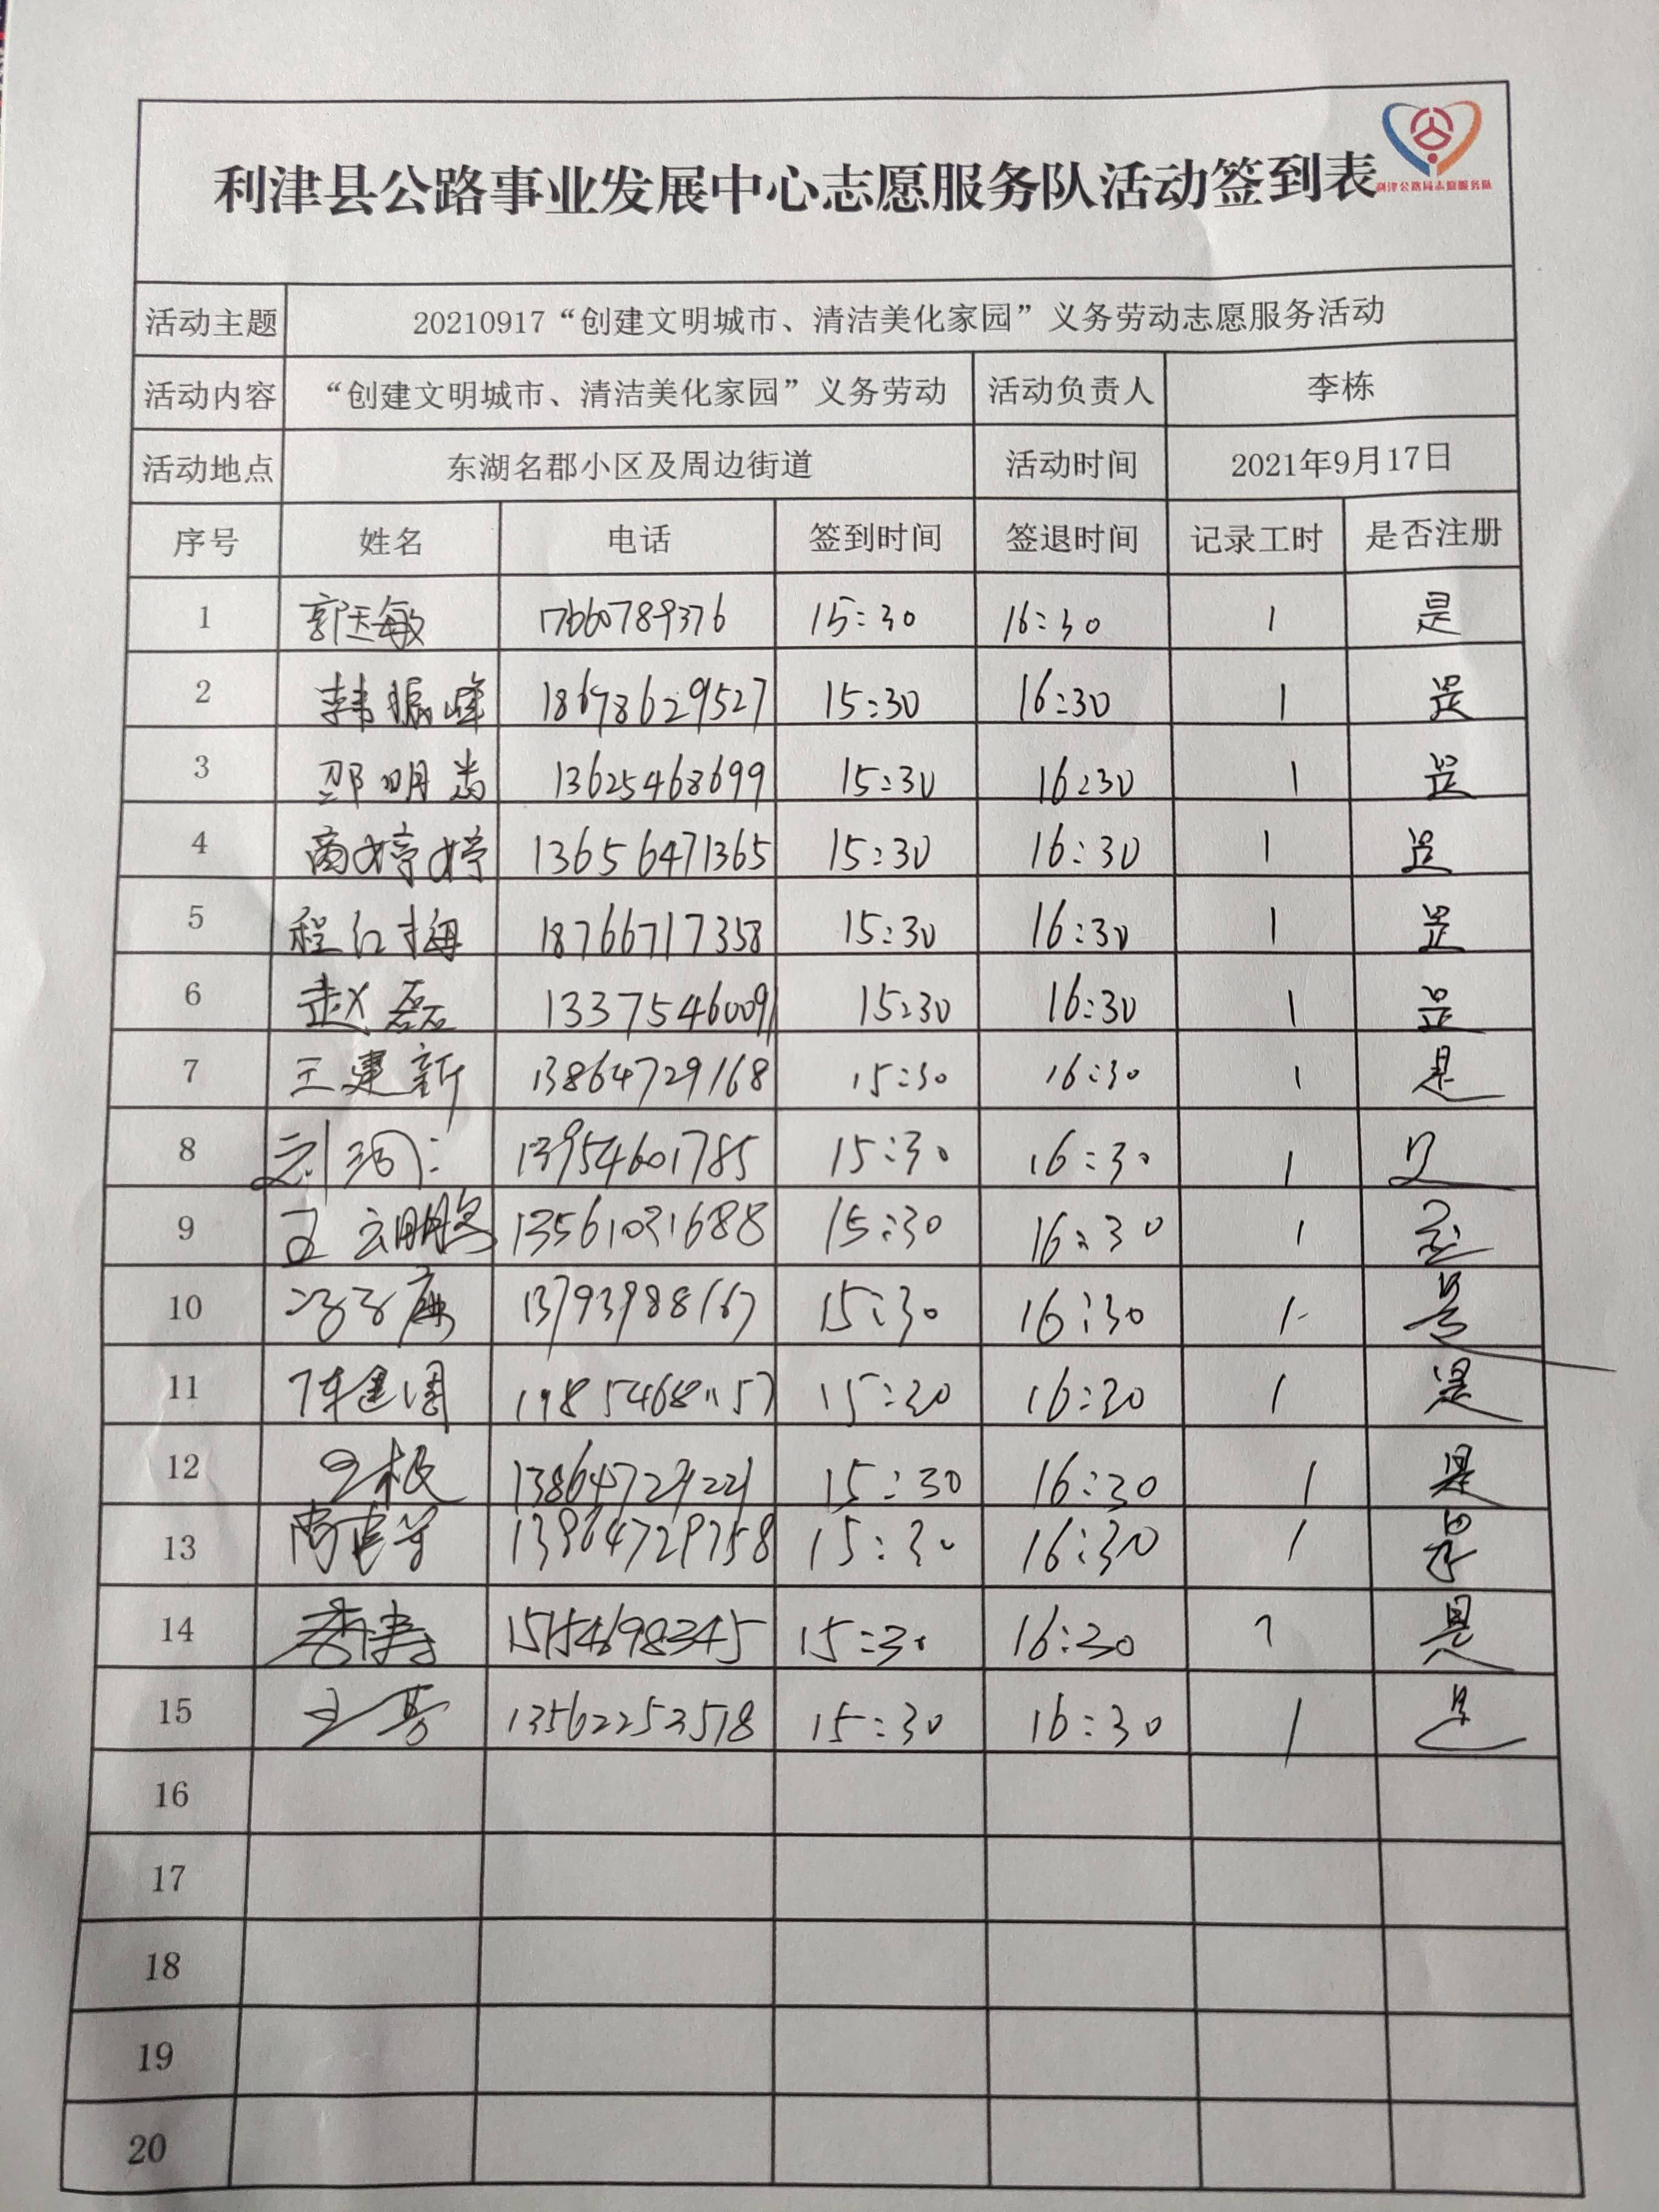 利津县公路事业发展中心志愿服务队活动签到表
利津公路局志愿服务队
活动主题 20210917“创建文明城市、清洁美化家园”义务劳动志愿服务活动
活动内容 “创建文明城市、清洁美化家园”义务劳动 活动负责人 李栋
活动地点 东湖名郡小区及周边街道 活动时间 2021年9月17日
序号 姓名 电话 签到时间 签退时间 记录工时 是否注册
1 17660789376 15:30 16:30 1 是
2 韩振峰 18678629527 15:30 16:30 1 是
3 13625468699 15:30 16:30 1 是
4 商婷婷 13656471365 15:30 16:30 1 是
5 程红梅 18766717358 15:30 16:30 1 是
6 赵磊 13375460091 15:30 16:30 1 是
7 王建新 13864729168 15:30 16:30 1 是
8 13954601785 15:30 16:30 1 是
9 13561031688 15:30 16:30 1 是
10 13793988167 15:30 16:30 1 是
11 15:30 16:30 1 是
12 15:30 16:30 1 是
13 13864729758 15:30 16:30 1 是
14 15154698345 15:30 16:30 1 是
15 13562253518 15:30 16:30 1 是
16
17
18
19
20